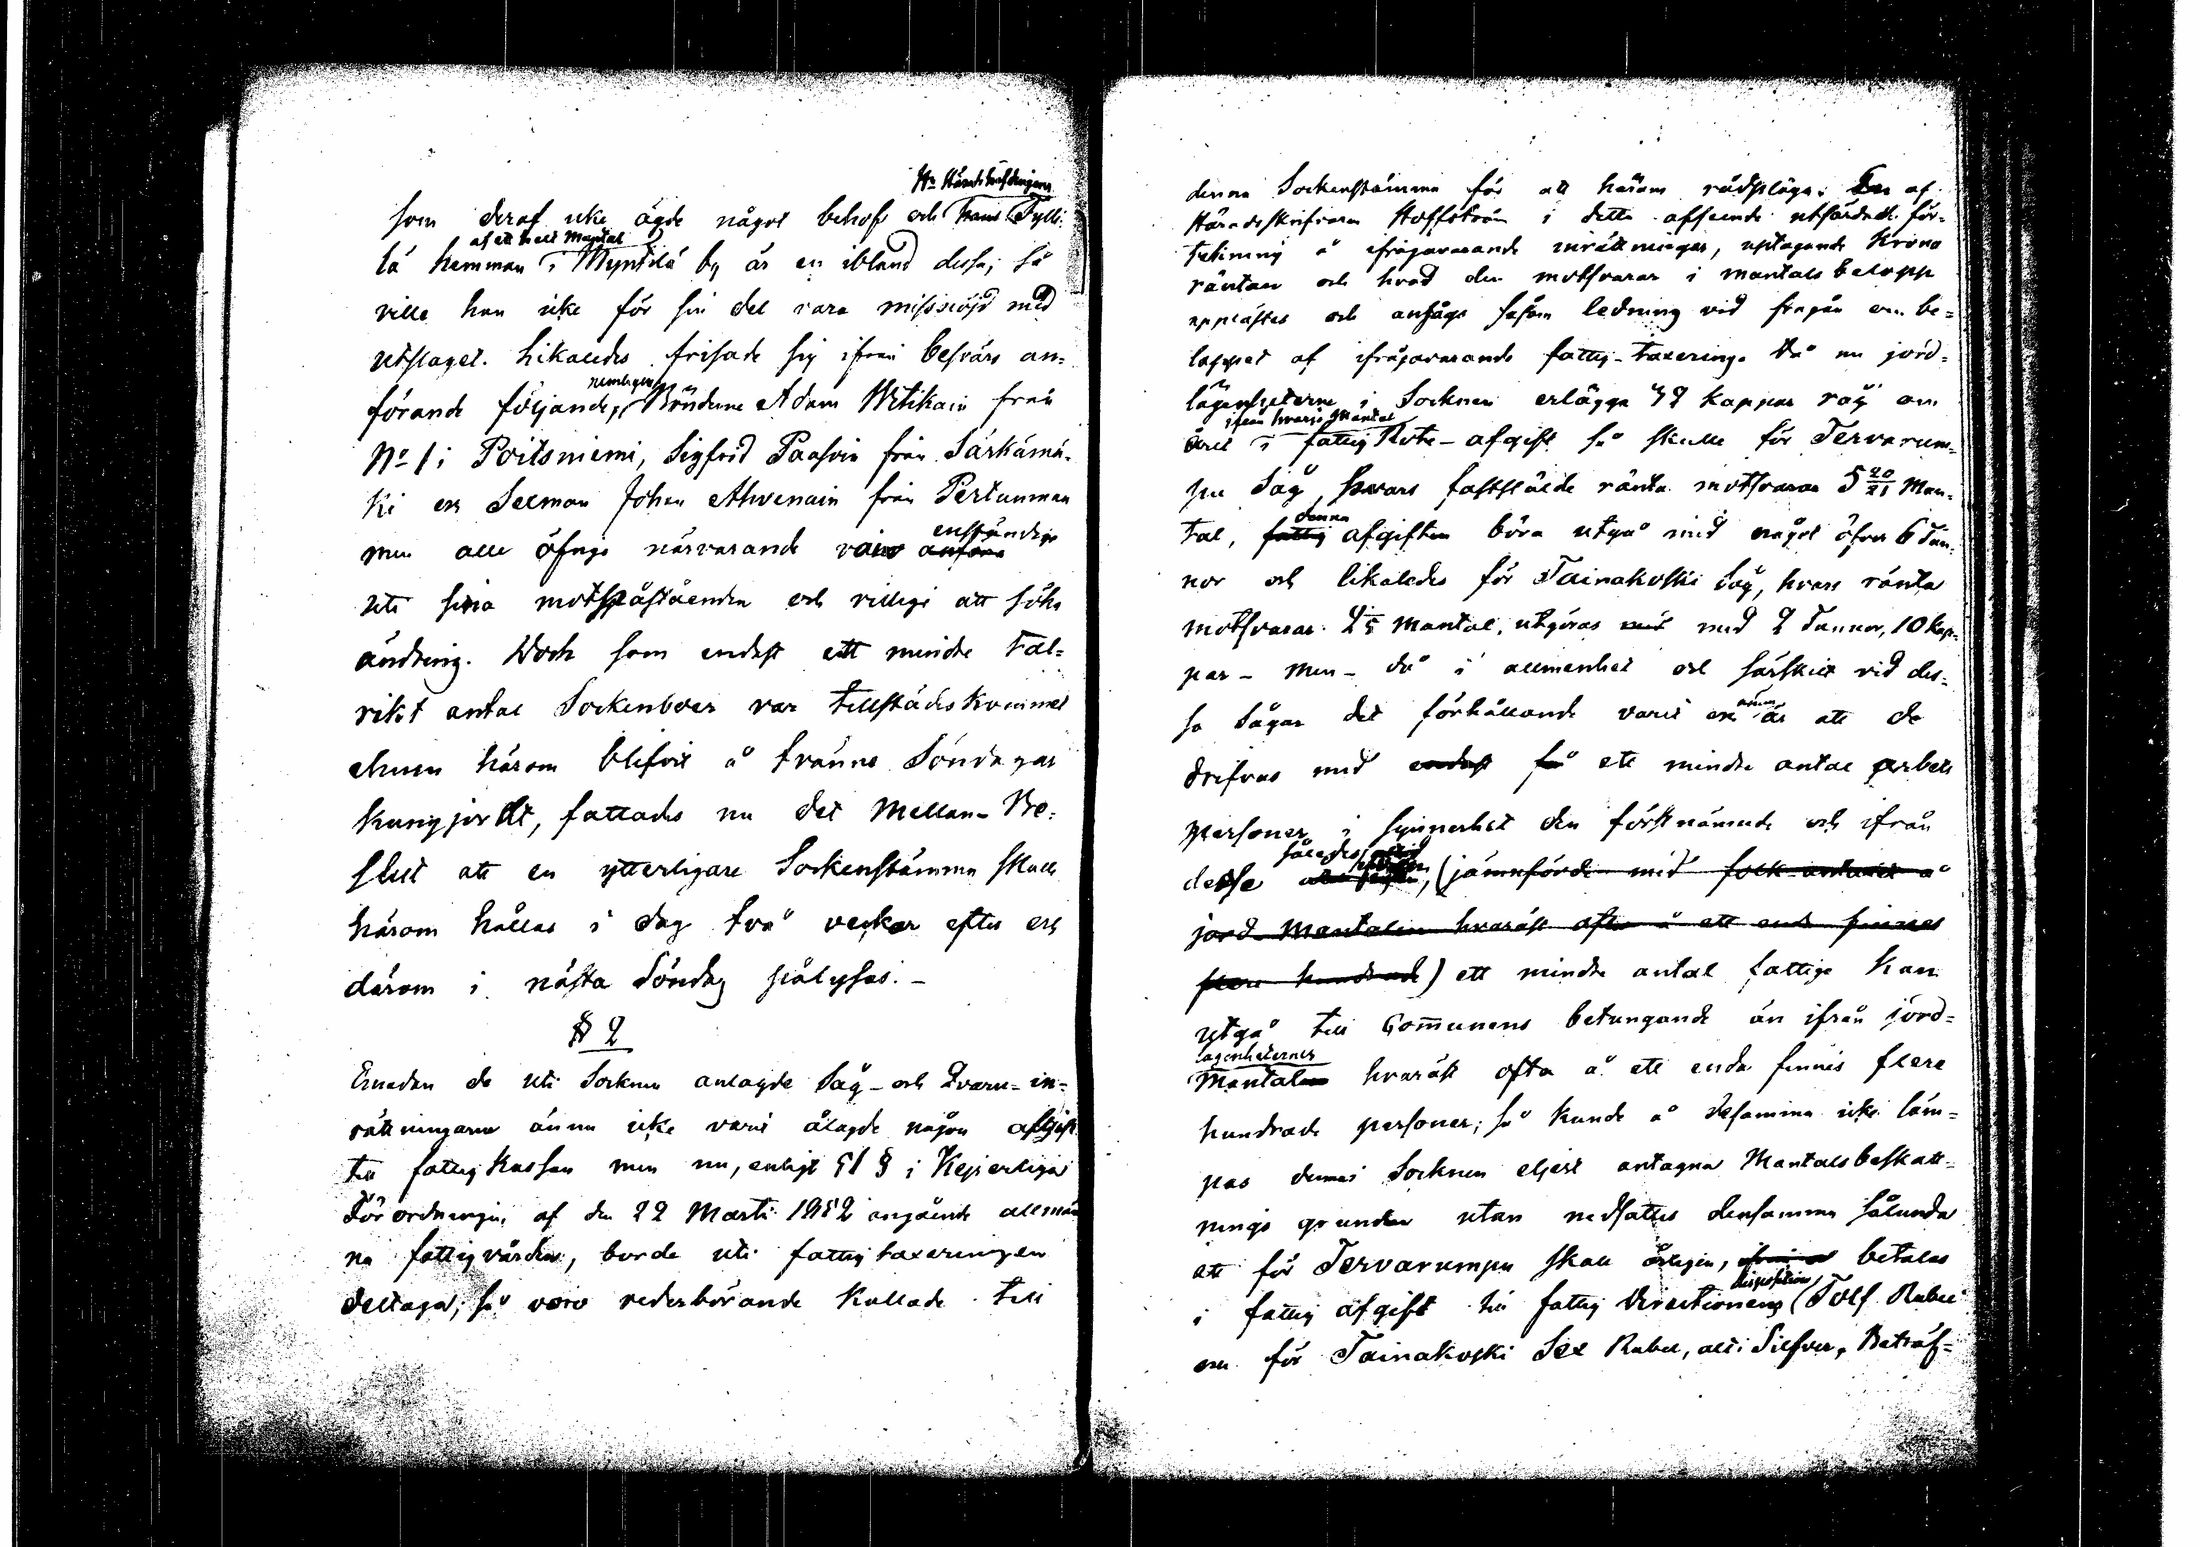 Hr Häradshöfdingens
som deraf icke ägde något behof och hans Tylli-
af ett helt Mantal
lä hemman i Myntilä by är en ibland dessa; så
ville han icke för sin del vara missnöjd med
utslaget. Likaledes frisade sig ifrån besvärs an-
förande följande, nemligen Bönderne Adam Witikain från
No 1 i Poitsniemi, Sigfrid Paasoin från Särkämä-
ki och Seeman Johan Ahvenain från Pertunmaa
men alle öfrige närvarande voro enständige
uti sina motpåståenden och villige att söka
ändring. Doch som endast ett mindre tal-
rikt antal Sockenboer var tillstädeskommet
ehuru härom blifvit å tvänne Söndagar
kungjordt, fattades nu det Mellan-Be-
slut att en ytterligare Sockenstämma skall
härom hållas i dag två veckor efter och
därom i nästa Söndag pålysas. -
§ 2
Emedan de uti Socknen anlagde Såg- och Qvarn-in-
rättningarne ännu icke varit ålagde någon afgift
till fattigkassan men nu, enligt 51 § i Kejserliga
Förordningen af den 22 Marti 1852 angående allmän-
na fattigvården, borde uti fattigtaxeringen
deltaga; så voro vederbörande kallade till
denna Sockenstämma för att härom rådpläga. En af
Häradsskrifvaren Hoffström i detta afseende utfärdad för-
tekning å ifrågavarande inrättningar, uptagande Krono
räntan och hvad den motsvarar i mantals belopp
upplästes och ansågs såsom ledning vid frågan om be-
loppet af ifrågavarande fattig-taxering. Då nu jord-
lägenheterne i Socknen erlägga 42 kappar råg om
ifrån hvarje Mantal
året i fattig Rote-afgift så skulle för Tervarum-
pu Såg, hvars fastställde ränta motsvarar 5 20/21 Man-
denna
tal, fattig afgiften böra utgå med något öfver 6 Tun-
nor och likaledes för Tainakoski Såg, hvars ränta
motsvarar Mantal, utgöras med med 2 Tunnor, 10 Kap-
par - men - då i allmenhet och särskilt vid des-
sa Sågar det förhållande varit och ännu är att de
drifvas med endast få ett mindre antal arbets
personer i synnerhet den förstnämnde och ifrån
således
desse , (jämnförde med folk-antalet å
jord-Mantalen hvaräst ofta å ett enda finnes
flere hundrade) ett mindre antal fattige kan
utgå till Communens betungande än ifrån jord-
lägenheternes
Mantalen hvaräst ofta å ett enda finnes flere
hundrade personer; så kunde å desamma icke läm-
pas denna i Socknen eljest antagna Mantalsbeskatt-
nings grunden utan nedsattes densamma sålunda
att för Tervarumpu skall årligen, betalas
disposition
i fattig afgift till fattig Directionens Tolf Rubel
och för Tainakoski Sex Rubel, allt i Silfver. Beträf-